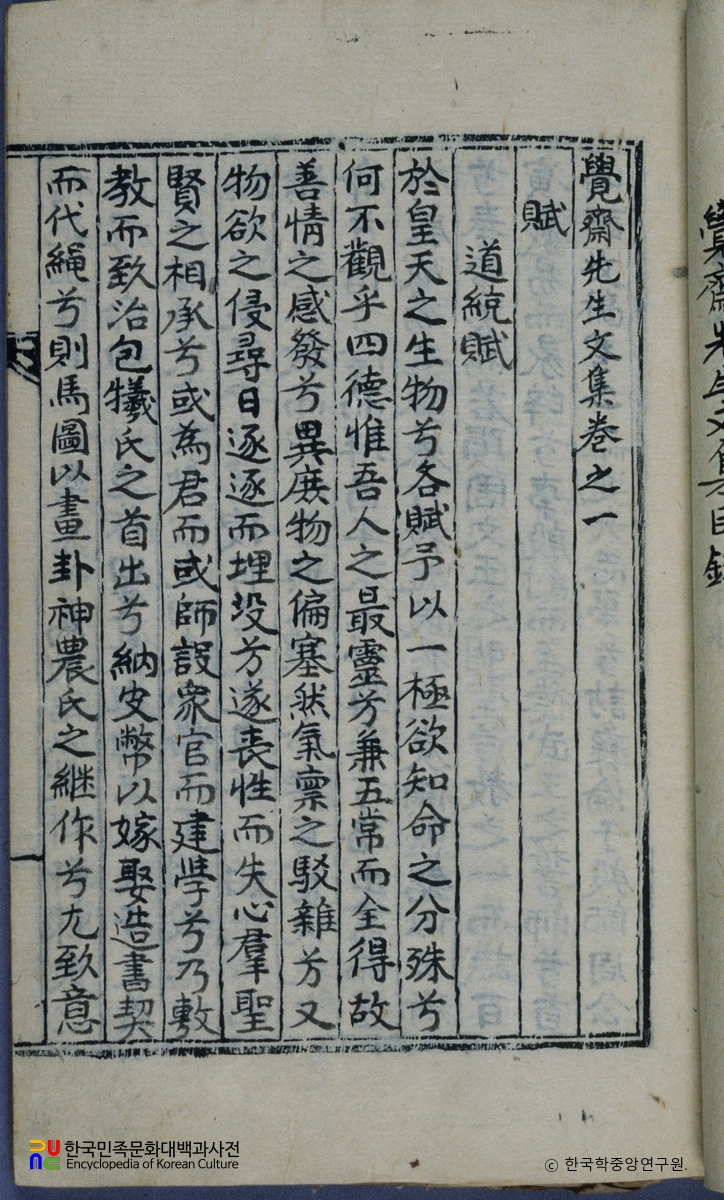 覺齋先生文集卷之一
賦
道統賦
於皇天之生物兮各賦予以一極欲知命之分殊兮
何不觀乎四德惟吾人之最靈兮兼五常而全得故
善情之感發兮異庶物之偏塞然氣禀之駁雜兮又
物欲之侵尋日逐逐而埋没兮遂喪性而失心羣聖
賢之相承兮或為君而或師設衆官而建學兮乃敷
教而致治包犧氏之首出兮納皮幣以嫁娶造書契
而代繩兮則馬圖以畫卦神農氏之継作兮尢致意
覺齋先生文集目錄
한국민족문화대백과사전
Encyclopedia of Korean Culture
ⓒ 한국학중앙연구원.